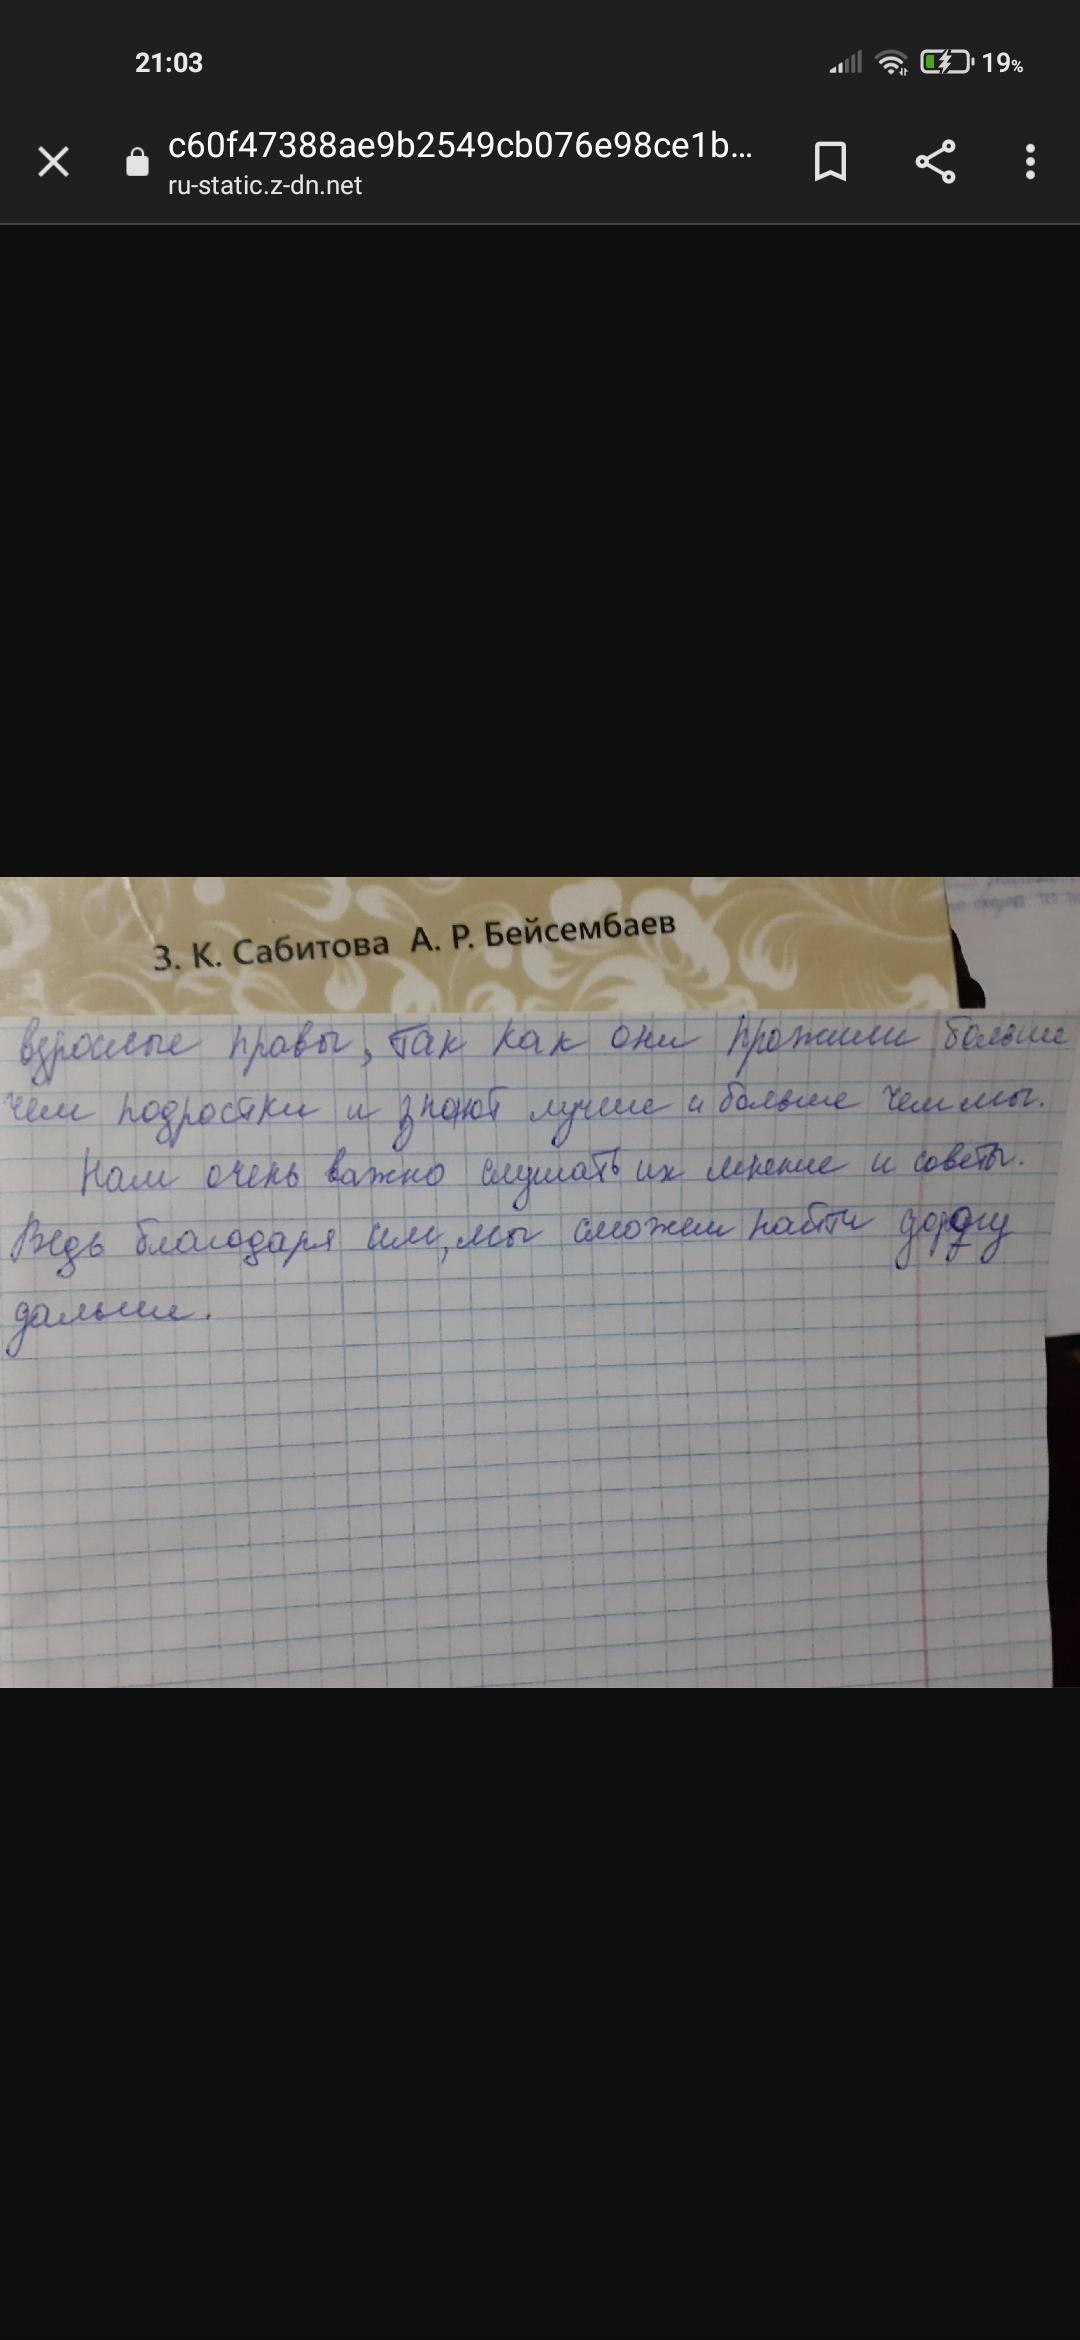 21:03
19%
c60f47388ae9b2549cb076e98ce1b...
ru-static.z-dn.net
З. К. Сабитова А. Р. Бейсембаев
взрослые правы, так как они прожили больше
чем подростки и знают лучше и больше чем мы.
Нам очень важно слушать их мнение и советы.
Ведь благодаря им, мы сможем найти дорогу
дальше.